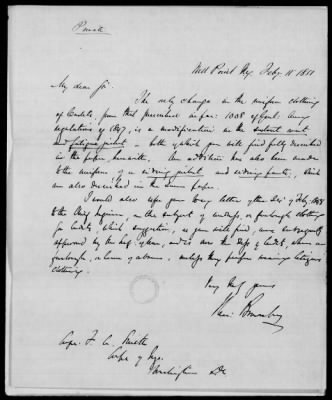 Private
West Point N.Y. Feby 11" 1851
My dear Sir
The only change in the uniform clothing
of Cadets, from that prescribed in par: 1008 of Genl. Army
regulations of 1847, is a modification in the
and fatigue jacket - both of which you will find fully described
in the paper, herewith. An addition has also been made
to the uniform of a riding jacket, and riding pants, which
are also described in the same paper.
I would also refer you to my letter of the 21st of Feby,
to the Chief Engineer, on the subject of undress, or furlough clothing
for Cadets, which suggestion, as you will find, was subsequently
approved by the Secy of War, and is now the dress of Cadets, when on
furlough, or leave of absence, unless they prefer wearing Citizens
clothing.
Very truly yours
Capt. F. A. Smith
Corps of Engrs.
Washington DC